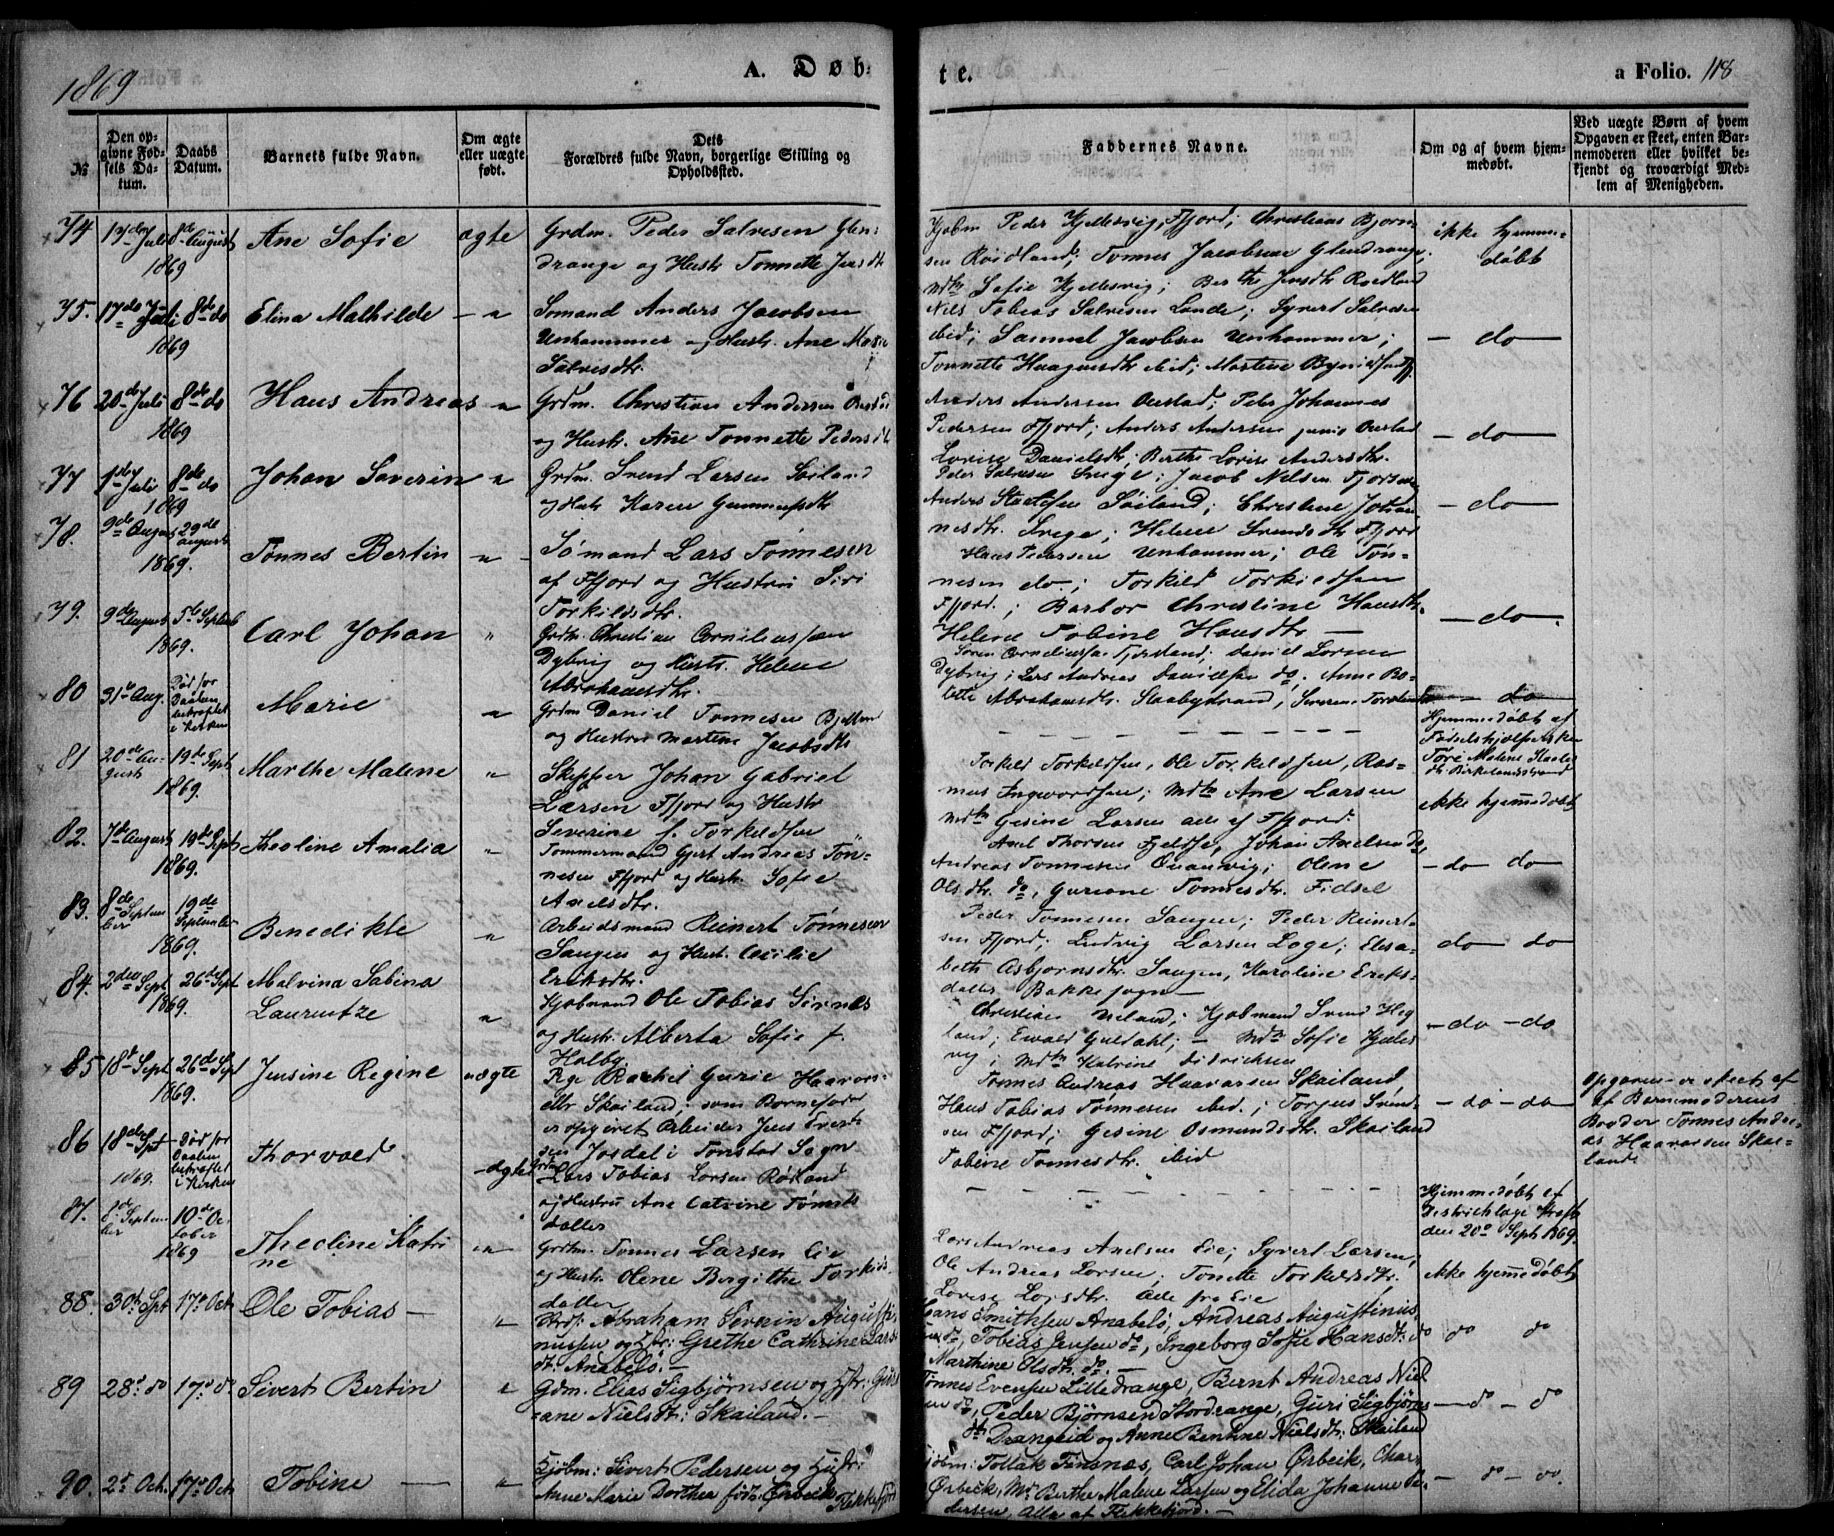 1869
A. Døb-
te.
a Folio. 118
№
Den op-
givne Fød-
sels Da-
tum.
Daabs
Datum.
Barnets fulde Navn.
Om ægte
eller uægte
født.
Dets
Forældres fulde Navn, borgerlige Stilling og
Opholdssted.
Faddernes Navne.
Om og af hvem hjem-
medøbt.
Ved uægte Børn af hvem
Opgaven er skeet, enten Bar-
nemoderen eller hvilket be-
kjendt og troværdigt Med-
lem af Menigheden.
74 17de Juli 1869 8de August Ane Sofie ægte
Grdm. Peder Salvesen Glen-
drange og Hustr Tonnette Jensdtr
Kjøbm Peder Kjellesvig, Fjord; Christians Bjorn-
sen Roidland; Tonnes Jacobsen Glendrange,
Mdm Sofie Kjellesvig; Berthe Jensdtr Roidland
ikke hjemme-
døbt
75. 17de Juli 1869 8de do Elina Mathilde
Sømand Anders Jacobsen
Unhammer og Hustr. Ane Marie
Salvesdtr.
Nils Tobias Salvesen Lande; Syvert Salvesen
ibid; Samuel Jacobsen Unhammer;
Tonnette Haagensdtr ibid; Martine
– do –
76 20de Juli 1869 8de do Hans Andreas
Grdm. Christian Andersen
og Hustr. Ane Tonnette Pedersdtr
Anders Andersen Oustad; Peter Johannes
Pedersen Fjord; Anders Andersen junio Oustad
Lovise Danielsdtr; Berthe Lovise Andersdtr.
– do –
77 1de Juli 1869 8de do Johan Severin
Grdm. Svend Larsen Soiland
og Hustr Karen
Peter Salvesen Svege; Jacob Nilsen Fjord
Anders Søiland; Christine Johan-
nesdtr. Svege; Helene Svendsdtr Fjord
– do –
78. 9de August 1869. 29de august Tønnes Bertin
Sømand Lars Tønnesen
af Fjord og Hustru Siri
Torkildsdtr.
Hans Pedersen Unhammer; Ole Tøn-
nesen do.; Torkild Torkildsen
Fjord.; Barbor Christine Hansdtr.
Helene Tobine Hansdtr –
– do –
79. 9de August 1869. 5te Septemb Carl Johan
Grdm. Christian Corneliussen
Dybvig og Hustr. Helene
Abrahamsdtr.
Soren Corneliussen; Daniel Larsen
Dybvig; Lars Andreas Danielsen do; Anne Bo-
lette Abrahamsdtr. Staabystrand,
– do
80 31te Aug. Død for Daaben bekræftet i Kirken Marie
Grdm Daniel Tonnesen
og Hustru Martine Jacobsdtr
Hjemmedøbt af
Tore Malene
Birkelandsstrand
81 20de August 1869. 19de Sept Marthe Malene
Skipper Johan Gabriel
Larsen Fjord og Hustr
Severine f. Torkildsen
Torkild Torkildsen, Ole Torkildsen, Ras-
mus Ingwordsen; Mdm Ane Larsen
Mdm Gesine Larsen alle af Fjord.
ikke hjemmedøbt
82. 7de August 1869. 19de Sept Theoline Amalia
Tommermand Gjert Andreas Ton-
nesen Fjord og Hustr. Sofie
Axelsdtr.
Axel Thorsen Fjeldse, Johan Axelsen do,
Andreas Tonnesen; Olene
Olsdtr. do, Guriane Tonnesdtr. Fidsel
– do do
83. 8de September 1869. 19de September Benedikte
Arbeidsmand Reinert Tønnesen
Saugen og Hust. Cecilie
Eriksdtr.
Peder Tonnesen Saugen; Peder Reinert-
sen Fjord; Ludvig Larsen Loge; Elisa-
beth Asbjornsdtr. Saugen, Karoline Eriks-
datter Bakke sogn –
do – do
84. 2den Sept 1869. 26de Sept Malvina Sabina
Laurentze
Kjøbmand Ole Tobias Sirnes
og Hustr. Alberta Sofie f.
Holby
Christian Ueland; Kjøbmand Svend Heg-
land; Ewald Guldahl; – Mdm Sofie Kjeles-
vig; Mdm Katrine Didrichsen
– do – do
85 18de Sept 1869. 26de Sept Jensine Regine uægte
Pge Rachel Gurie Haavars-
dtr Skailand; som Barnefader
er opgivet Arbeider Jens Evert-
sen Josdal i Tonstad Sogn
Tonnes Andreas Haavarsen Skailand,
Hans Tobias Tønnesen ibid.; Torjus Svend-
sen Fjord; Gesine Osmundsdtr. Skailand
Tobine Tonnesdtr. ibid
– do – do
Opgaven er skeet af
af Barnemoderens
Broder Tonnes Andre-
as Haavarsen Skai-
land
86 18de Spt 1869. Død for Daaben bekræftet i Kirken Thorvald ægte
Grdm Lars Tobias Larsen Røiland
og Hustru Ane Catrine Tønnes-
datter
Hjemmedøbt af
Districtslæge
den 20de Sept 1869.
87. 8de September 1869 10de October Theoline Katri
ne
Grdm. Tonnes Larsen Eie
og Hustr. Olene Bergithe Torkilds
datter
Lars Andreas Axelsen Eie; Syvert Larsen;
Ole Andreas Larsen; Tonette Torkelsdtr;
Lovise Larsdtr. alle fra Eie
ikke hjemmedøbt
88. 30te Spt 17de Oct. Ole Tobias –
Grdb: Abraham Severin Augusti-
nussen og Hstr: Grethe Cathrine Lars-
dt: Anabelø. –
Hans Smithsen Anabelø, Andreas Augustinus-
sen do, Tobias Jensen do, Ingeborg Sofie Hansdt: do
Marthine Olsdt: do. –
do do
89 28de do 17de do Sivert Bertin
Gdm. Elias Sigbjørnsen og Hstr: Guri
ane Nielsdt: Skailand. –
Tønnes Evensen Lilledrange, Bernt Andreas Niel
sen do, Peder Bjørnsen Stordrange, Guri Sigbjørns-
dt Drangeid og Anne Bentine Nielsdt: Skailand
– do – do
90. 2de Oct. 17de Oct Tobine –
Kjøbm: Sivert Pedersen og Hustr:
Anne Marie Dorthea født Ørbeck Flekkefjord
Kjøbm: Tollak Finsnæs, Carl Johan Ørbeck, Char.
Ørbeck, Md. Berthe Malene Larsen og Elida Johanne Pe-
dersen, Alle af Flekkefjord. –
– do – do.